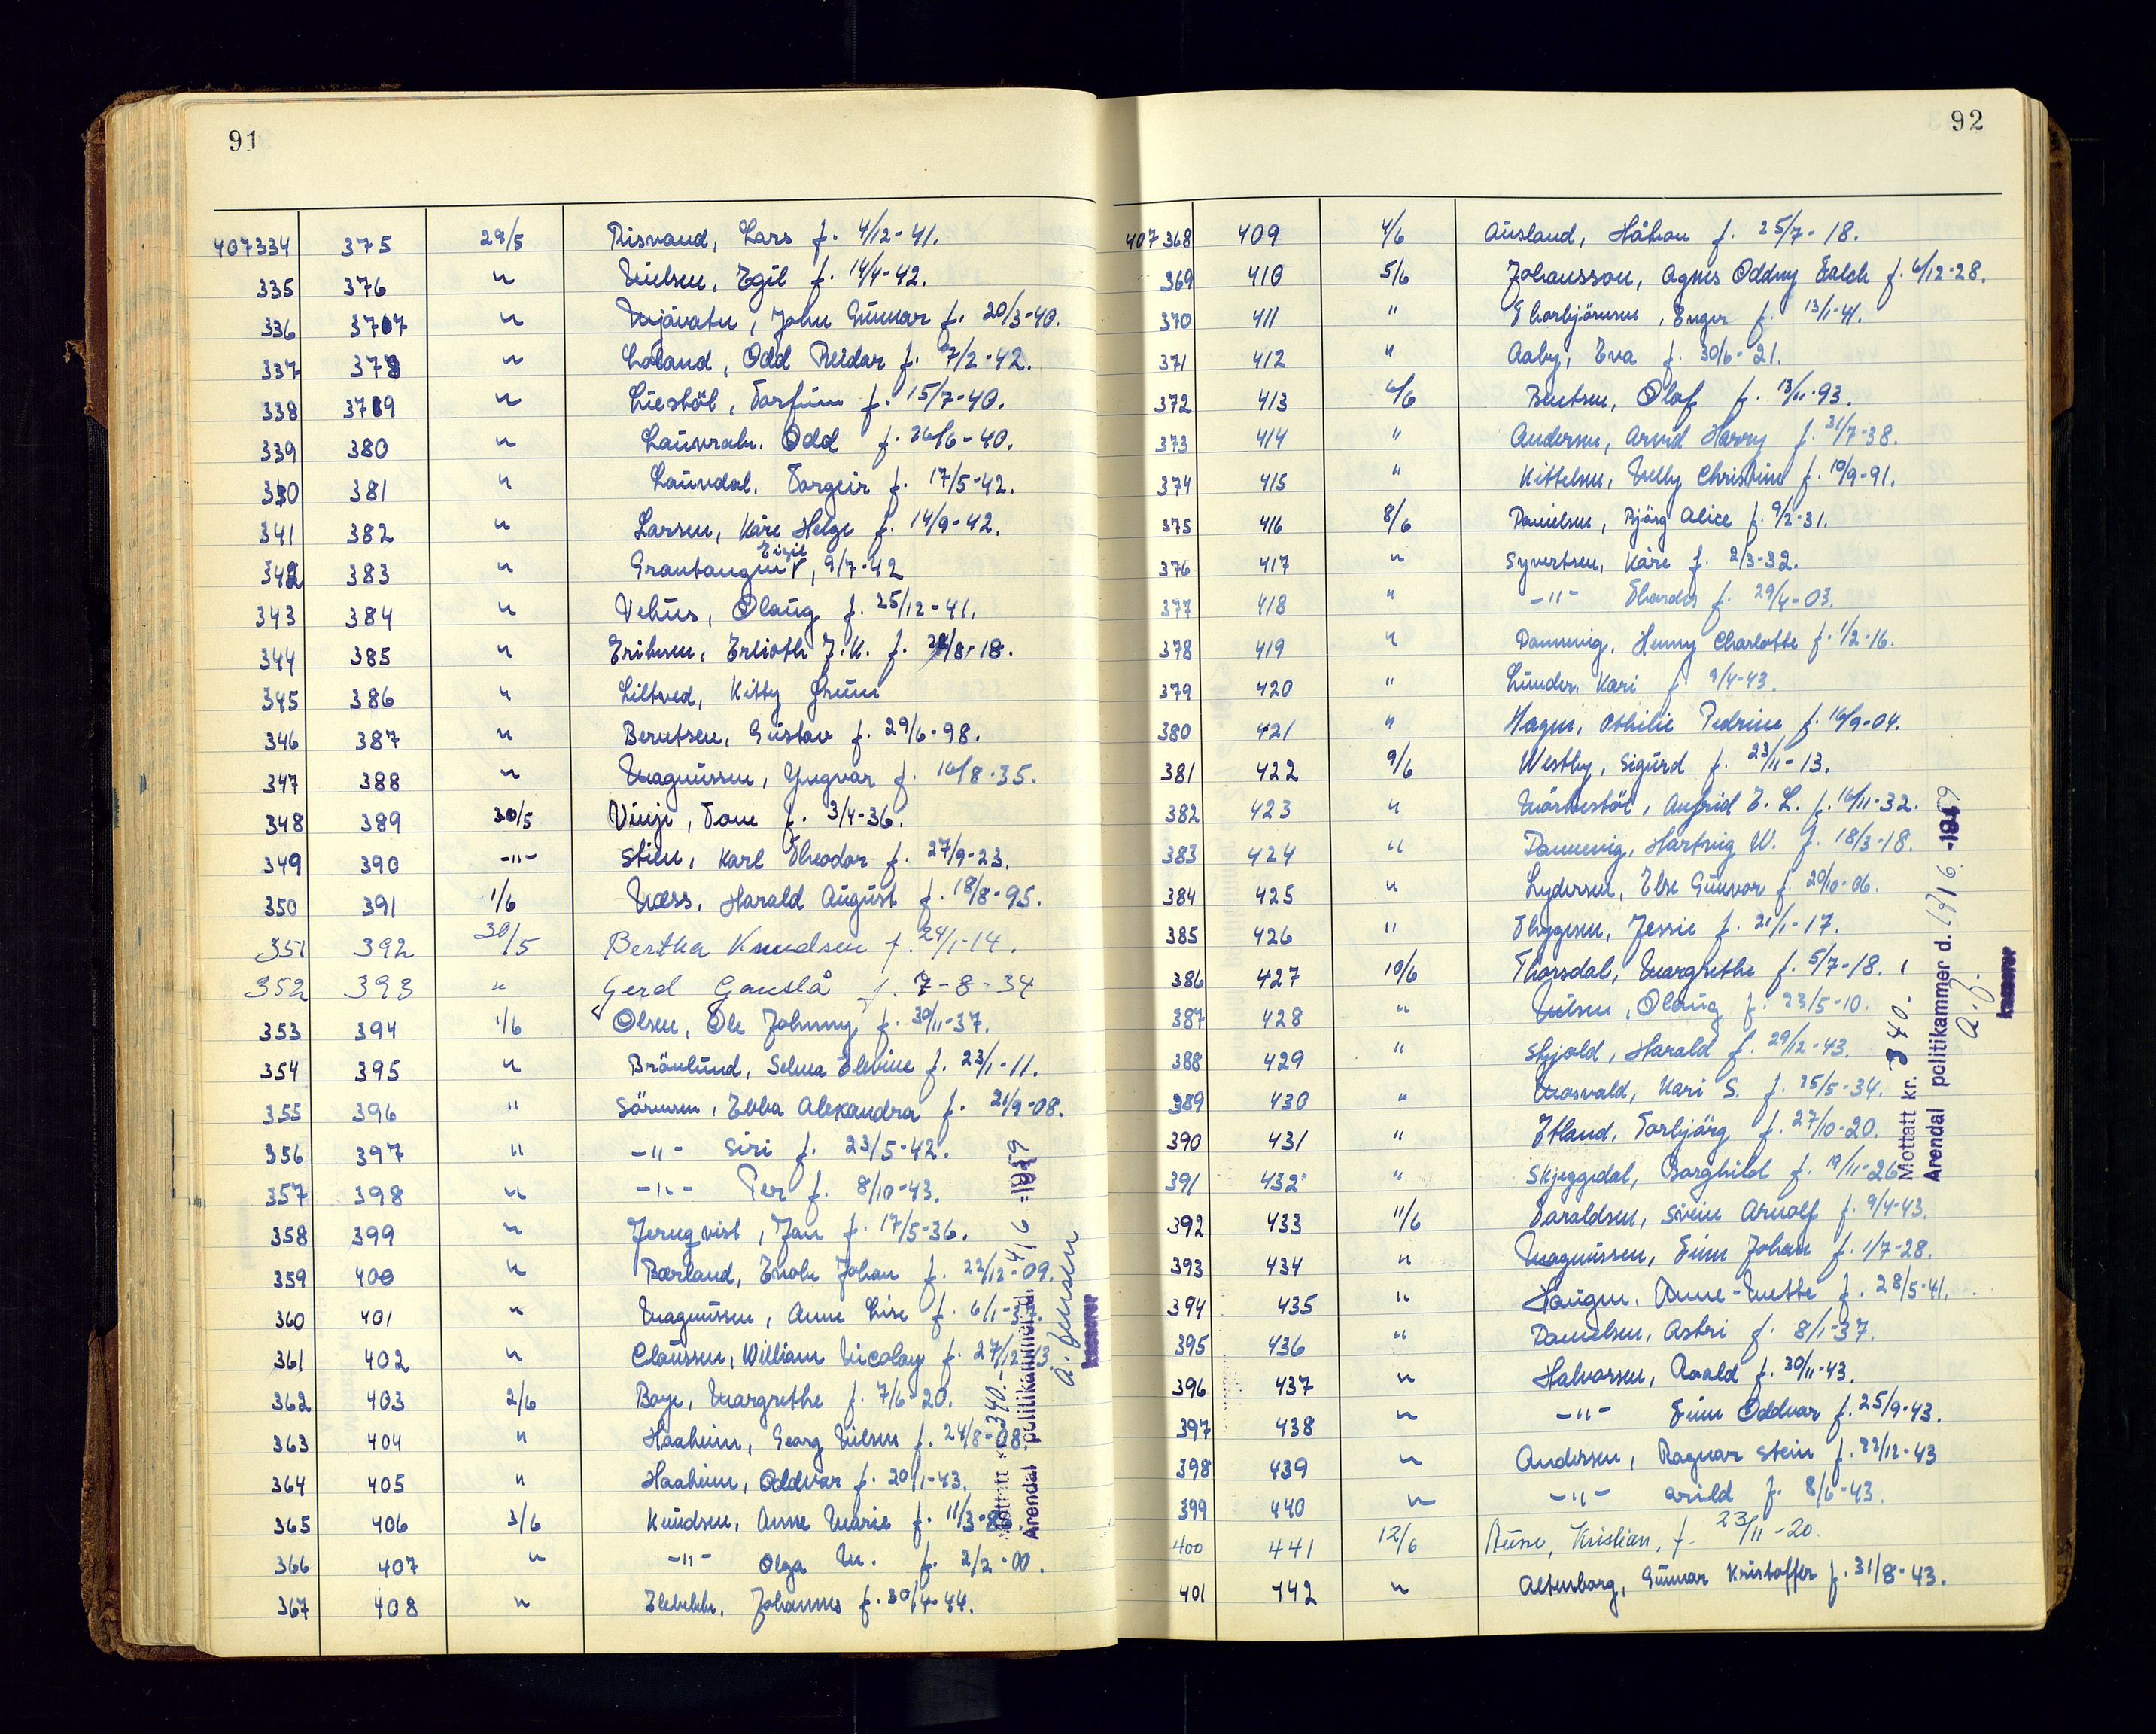 91
407334 375 29/5 Risvand, Lars f. 4/12-41.
335 376 " Nielsen, Egil f. 14/4-42.
336 377 " Mjåvatn, John Gunnar f. 20/3-40.
337 378 " Loland, Odd Reidar f. 7/2-42.
338 379 " Liestöl, Torfinn f. 15/7-40.
339 380 " Lauvrak. Odd f. 26/6-40.
340 381 " Lauvdal. Torgeir f. 17/5-42.
341 382 " Larsen, Kåre Helge f. 14/9-42.
342 383 " Grautangen Eigil, 9/7-42
343 384 " Vehus, Olaug f. 25/12-41.
344 385 " Eriksen, J.K. f. /8-18.
345 386 " Liltved, Kitty Grünn
346 387 " Berntsen, Gustav f. 29/6-98.
347 388 " Magnussen, Yngvar f. 16/8-35.
348 389 30/5 Vinje, Tone f. 3/4-36.
349 390 -"- Stien, Karl Theodor f. 27/9-23.
350 391 1/6 Næss, Harald August f. 18/8-95.
351 392 30/5 Bertha Knudsen f. 24/1-14.
352 393 " Gerd Gauslå f. 7-8-34
353 394 1/6 Olsen, Ole Johnny f. 30/11-37.
354 395 " Brönlund, Selma Elevine f. 23/1-11.
355 396 " Sörensen, Ebba Alexandra f. 21/9-08.
356 397 " -"- Siri f. 23/5-42.
357 398 " -"- Per f. 8/10-43.
358 399 " Jernqvist, Jan f. 17/5-36.
359 400 " Bærland, Enok Johan f. 22/12-09.
360 401 " Magnussen, Anne Lise f. 6/1-37.
361 402 " Claussen, William Nicolay f. 27/12-13.
362 403 2/6 Boye, Margrethe f. 7/6-20.
363 404 " Haaheim, Georg Nilsen f. 24/8-08.
364 405 " Haaheim, Oddvar f. 20/1-43.
365 406 3/6 Knudsen, Anne Marie f. 11/3-86
366 407 " -"- Olga M. f. 2/2-00.
367 408 " Johannes f. 30/4-44.
Mottatt kr. 340.-
Arendal politikammer d. 4/6 1959
A. Jensen
kasserer
92
407368 409 4/6 Ausland, Håkon f. 25/7-18.
369 410 5/6 Johansson, Agnes Oddny Falch f. 6/12-28.
370 411 " Thorbjörnsen, Inger f. 13/1-41.
371 412 " Aaby, Eva f. 30/6-21.
372 413 6/6 Bentsen, Olaf f. 13/11-93.
373 414 " Andersen, Arvid Harry f. 31/7-38.
374 415 " Kittelsen, Nelly Christine f. 10/9-91.
375 416 8/6 Danielsen, Bjørg Alice f. 9/2-31.
376 417 " Syvertsen, Kåre f. 2/3-32.
377 418 " -"- Thardis f. 29/4-03.
378 419 " Dannevig, Henny Charlotte f. 1/2-16.
379 420 " Lunder. Kari f. 9/4-43.
380 421 " Hagen, Othilie Pedrine f. 16/9-04.
381 422 9/6 Westby, Sigurd f. 23/11-13.
382 423 " Mörkestöl, Anfrid E. L. f. 16/11-32.
383 424 " Dannevig, Hartvig W. f. 18/3-18.
384 425 " Lydersen, Else Gunvor f. 20/10-06.
385 426 " Thygesen, Jessie f. 21/1-17.
386 427 10/6 Thorsdal, Margrethe f. 5/7-18.
387 428 " Nilsen, Olaug f. 23/5-10.
388 429 " Skjold, Harald f. 29/12-43.
389 430 " Mosvald, Kari S. f. 25/5-34.
390 431 " Jtland, Torbjörg f. 27/10-20.
391 432 " Skjeggedal, Borghild f. 19/11-26
392 433 11/6 Taraldsen, Svein Arnolf f. 9/4-43.
393 434 " Magnussen, Finn Johan f. 1/7-28.
394 435 " Haugen, Anne-Mette f. 28/5-41.
395 436 " Danielsen, Astri f. 8/1-37.
396 437 " Halvorsen, Roald f. 30/11-43.
397 438 " -"- Finn Oddvar f. 25/9-43.
398 439 " Andersen, Ragnar Stein f. 22/12-43
399 440 " -"- Arild f. 8/6-43.
400 441 12/6 Kristian, f. 23/11-20.
401 442 " Altenborg, Gunnar Kristoffer f. 31/8-43.
Mottatt kr. 340.-
Arendal politikammer d. 17/6 1959
A. J.
kasserer